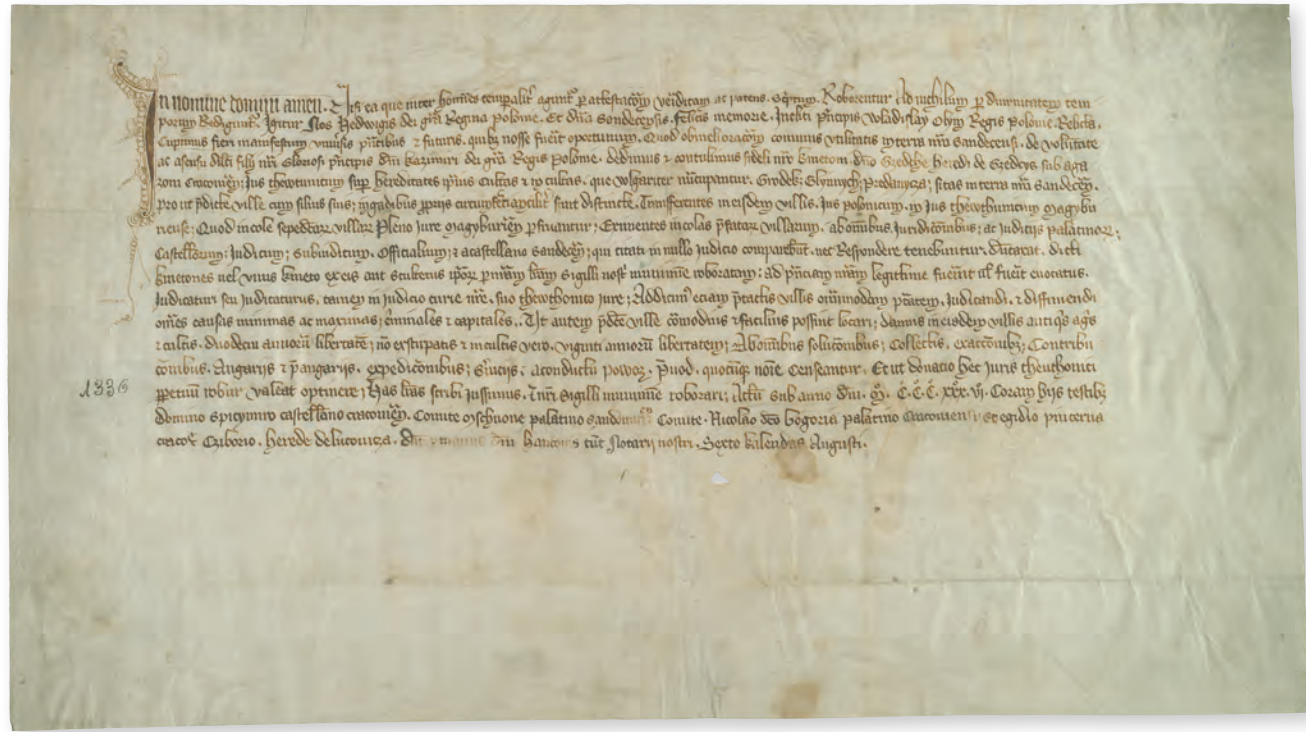 In nomine domini amen. Nisi ea que inter homines temporalit' agunt' p attestacōem veridicam ac patens. Sc'ptum. Roborentur, Ad nichilum p diurnitatem tem
porum Rediguntr. Igitur Nos Hedwigis dei gr̄a Regina polonie. Et dn̄a Sondecensis. felicis memorie. Incliti p̄ncipis wladislay Olym Regis polonie. Relicta.
Cupimus fieri manifestum vniu'sis pn̄tibus ⁊ futuris. quibꝫ nosse fuerit oportunum. Quod ob meliorac̄oem comunis vtilitatis in terra nr̄a sandecensi. de voluntate
ac assensu dilc̄i filij nr̄i Gloriosi p̄ncipis dn̄i kazimiri dei gr̄a Regis polonie. dedimus ⁊ contulimus fideli nr̄o kmetom. dn̄o
Ius thewtunicum sup hereditates ip̄ius cultas ⁊ in cultas. que volgariter nūcupantur. Grodek; Glynnych; przedanycza; sitas in terra nr̄a sandecen̄.
pro ut p̄dicte ville cum silius suis; in gadibus pp̄rijs sunt distincte. Transferentes in eisdem villis. Ius polonicum. in Ius thewthunicum magybu
riense; Quod incole sepedc̄ar' villar' pleno iure magyburien̄ p fruantur; Eximentes incolas p̄fatar' villarum. ab om̄ibus iuridicōibus; ac iudicijs palatinor';
Castellanor'; Iudicum; subiudicum. Officialium; ⁊ a castellano sandecen̄; qui citati in nullo iudicio comparebūt. nec Respondere tenebuntur. dicti
kmetones uel vnus kmeto ex eis aut scultetus ip̄or' p nr̄am lr̄am Sigilli nost' munimīe roboratam; ad p̄nciam nr̄am legitime fuerint ul' fuerit euocatus.
Iudicatur seu iudicaturus. tamen in iudicio curie nr̄e. suo thewthonico iure; Addicim' eciam p̄tactis villis om̄imodam p̄tatem. Iudicandi. ⁊ diffiniendi
om̄es causas minimas ac maximas; c'minales ⁊ capitales.. Vt autem p̄dc̄e ville comodius ⁊ facilius possint locari; damus in eisdem villis antiq's ag's
⁊ cultis. duodecim annorū libertatē; nō exstirpatis ⁊ incultis vero. viginti annorū libertatem; Ab om̄ibus soluc̄oibus; Collectis. exacc̄oibꝫ; Contribu
c̄oibus. Angarijs ⁊ p̄angarijs. expedic̄oibus; s'uicijs; a conductu powoz. p̄uod. quocūqꝫ noīe censeantur. Et ut donacio hec iuris theuthonici
ppetuū robur valeat optinere; has lr̄as scribi iussimus. ⁊ nr̄i sigilli munimīe roborari; Actū sub anno dn̄i. M. C. C. C. xxx. vj. Coram hijs testibꝫ
1336
domino Spicymiro castellano cracouien̄. Comite Comite. Nicolao dc̄o bogoria palatino Cracouiensi et egidio pincerna
cracou' Czyborio. herede de lucowicza. dat tūc Notarij nostri. Sexto kalendas Augusti.